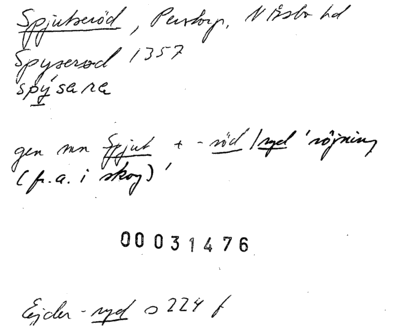 Spjutseröd, Perstorp, N Åsbo hd
Spyserød 1357
spýsara
gen mn Spjut + -röd/ryd 'röjning
(fr.a. i skog)'
00031476
Ejder-ryd s 224 f